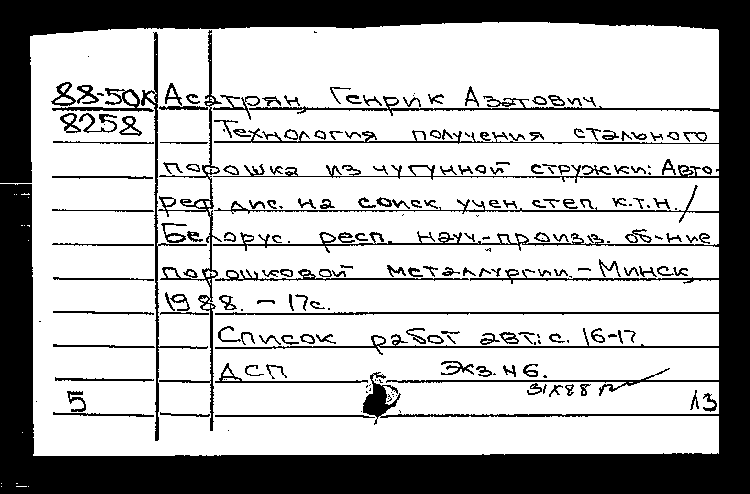 88-50К Асатрян, Генрик Азатович.
8258 Технология получения стального
порошка из чугунной стружки: Авто-
реф. дис. на соиск. учен. степ. к.т.н. /
Белорус. респ. науч.-произв. об-ние
порошковой металлургии. - Минск,
1988. - 17с.
Список работ авт.: с. 16-17.
ДСП Экз. N 6.
31X88
5 13